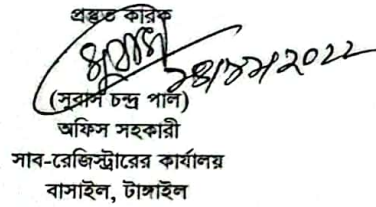 প্রস্তুত করিক
(সুবাস চন্দ্র পাল)
অফিস সহকারী
সাব-রেজিস্ট্রারের কার্যালয়
বাসাইল, টাঙ্গাইল